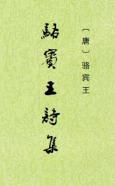 〔唐〕骆宾王
駱賓王詩集